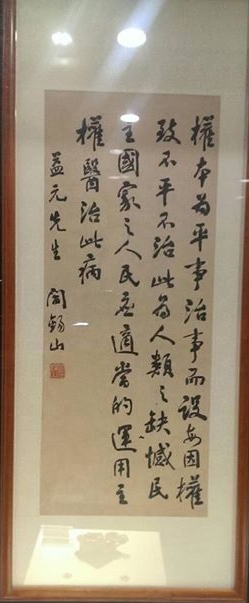 權本為平事治事而設每因權
致不平不治此為人類之缺憾民
主國家之人民應適當的運用主
權醫治此病
益元先生
閻錫山